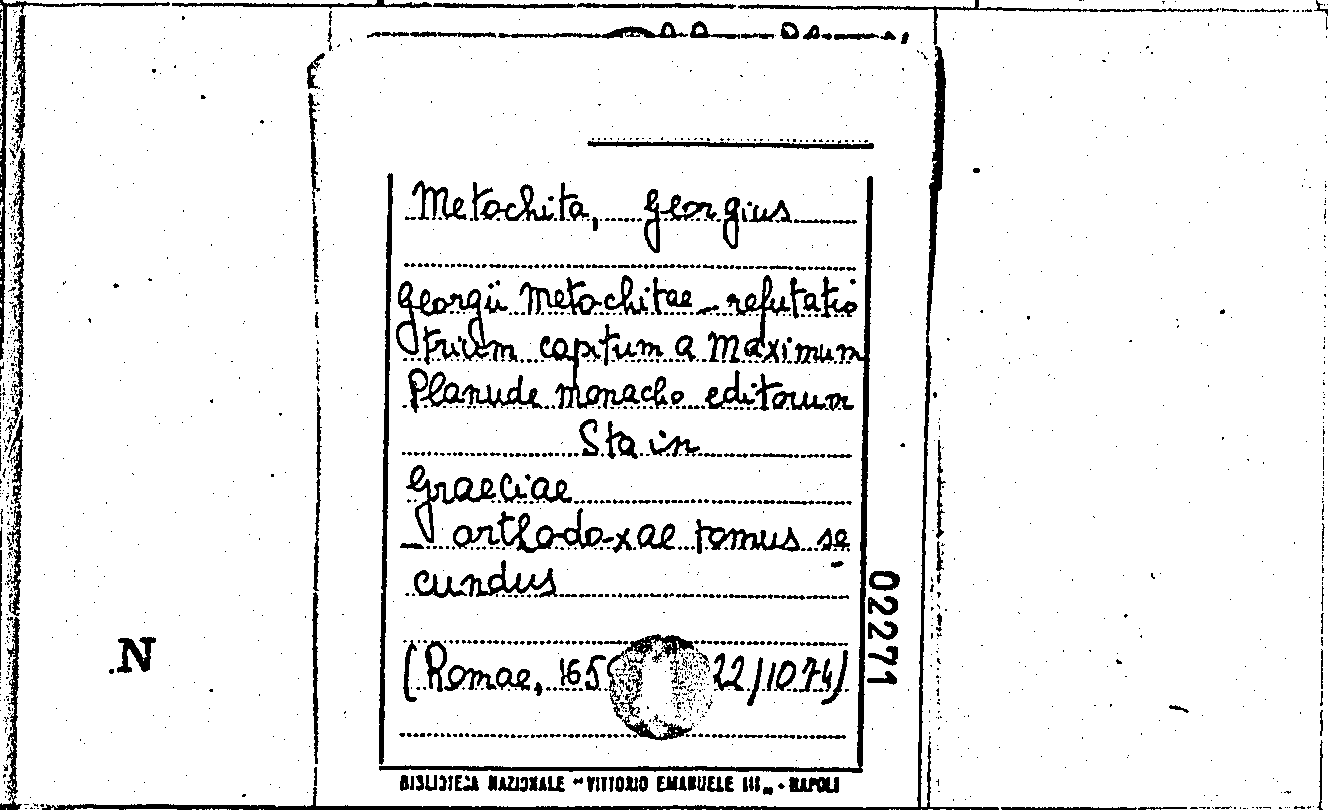 Metochita, Georgius
Georgii Metochitae refutatio
trium capitum a Maximum
Planude monacho editorum
Sta in
Graeciae
orthodoxae tomus se
cundus
(Romae, 165 22/1074)
02271
N
BIBLIOTECA NAZIONALE "VITTORIO EMANUELE III„ - NAPOLI